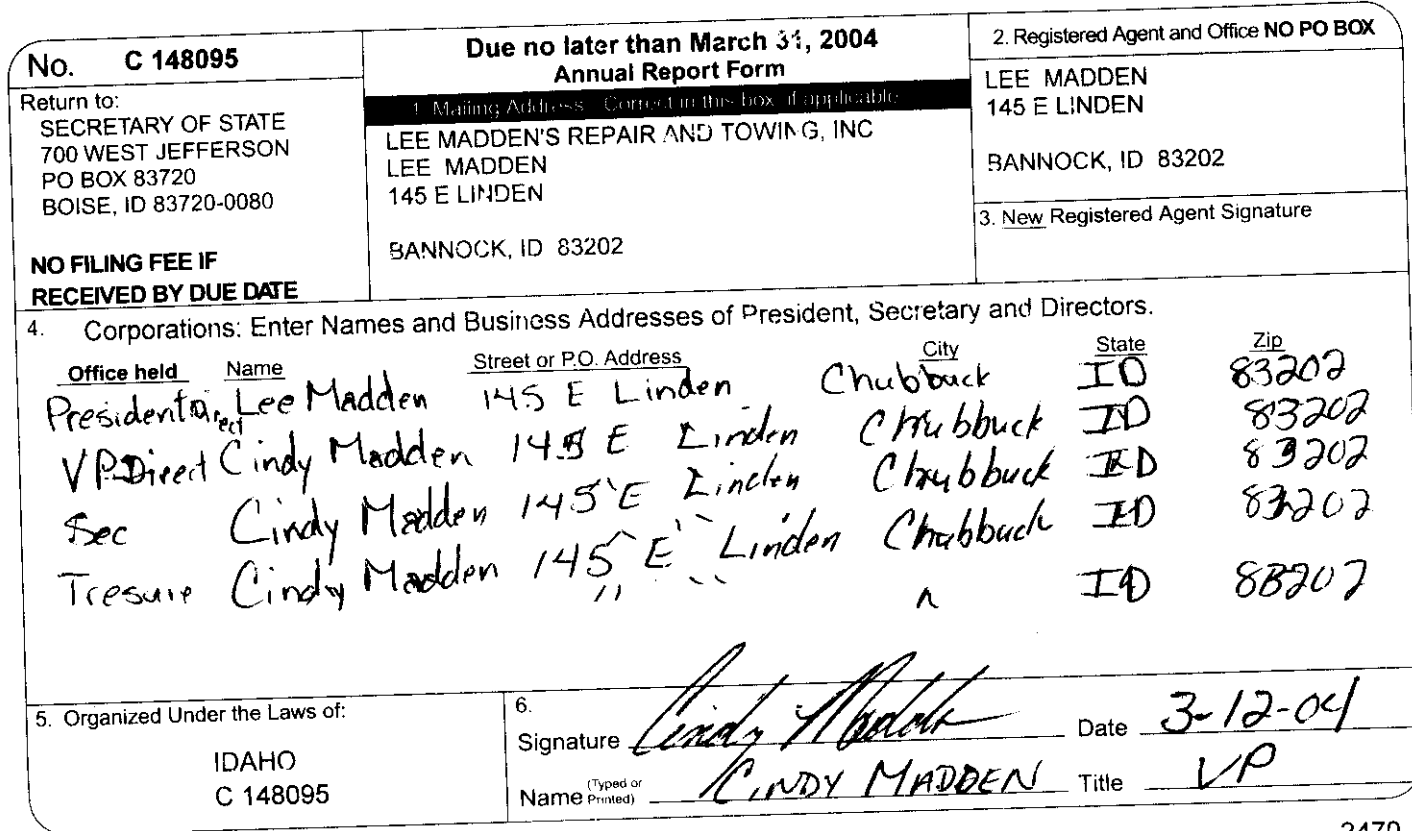 No. C 148095
Return to:
SECRETARY OF STATE
700 WEST JEFFERSON
PO BOX 83720
BOISE, ID 83720-0080
NO FILING FEE IF
RECEIVED BY DUE DATE
Due no later than March 31, 2004
Annual Report Form
1. Mailing Address: Correct in this box if applicable
LEE MADDEN'S REPAIR AND TOWING, INC
LEE MADDEN
145 E LINDEN
BANNOCK, ID 83202
2. Registered Agent and Office NO PO BOX
LEE MADDEN
145 E LINDEN
BANNOCK, ID 83202
3. New Registered Agent Signature
4. Corporations: Enter Names and Business Addresses of President, Secretary and Directors.
Office held Name Street or P.O. Address City State Zip
President Direct Lee Madden 145 E Linden Chubbuck ID 83202
VP Direct Cindy Madden 145 E Linden Chubbuck ID 83202
Sec Cindy Madden 145 E Linden Chubbuck ID 83202
Tresure Cindy Madden 145 E Linden Chubbuck ID 83202
" " " ID 83202
5. Organized Under the Laws of:
IDAHO
C 148095
6.
Signature Cindy Madden Date 3-12-04
Name (Typed or Printed) CINDY MADDEN Title VP